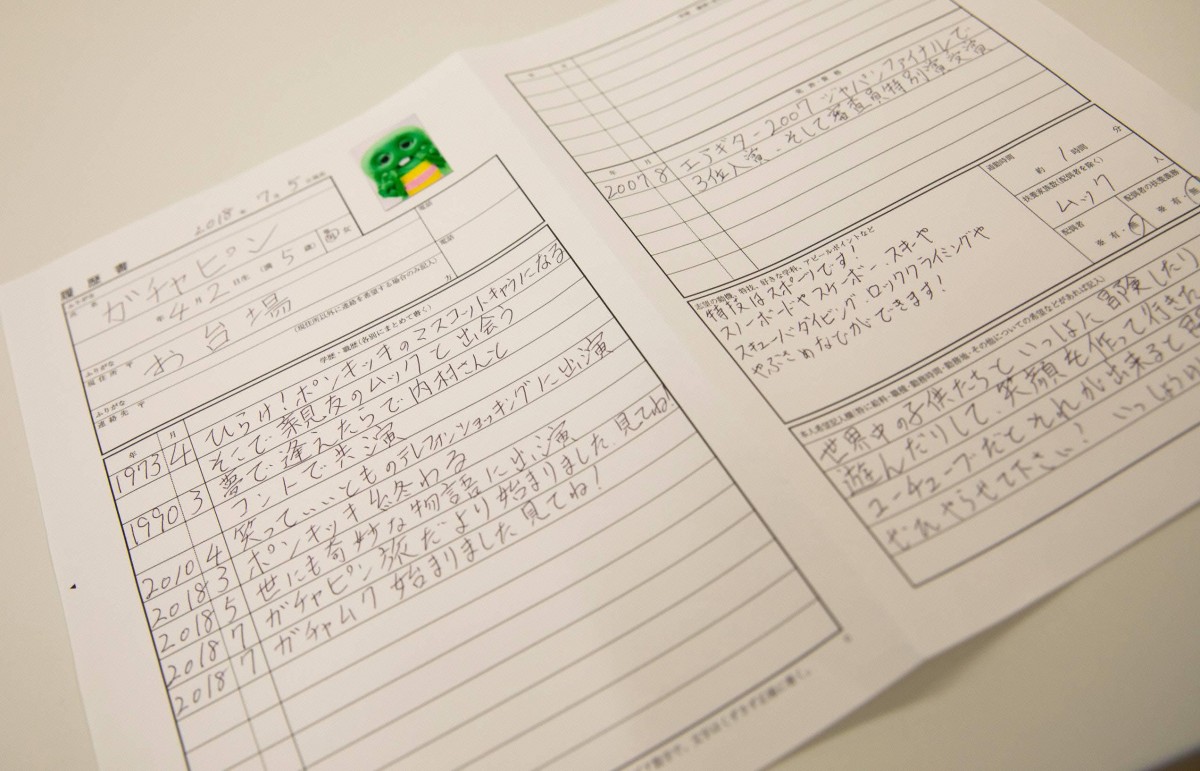 履歴書
2018. 7. 5
ふりがな
ガチャピン
年 4月 2日生 (満 5 歳) 男 女
ふりがな
現住所 〒
お台場
電話
ふりがな
連絡先 〒
(現住所以外に連絡を希望する場合のみ記入)
方
電話
年 月 学歴・職歴(各別にまとめて書く)
1973 4 ひらけ!ポンキッキのマスコットキャラになる
そこで親友のムックと出会う
1990 3 夢で逢えたらで内村さんと
コントで共演
2010 4 笑っていいとものテレフォンショッキングに出演
2018 3 ポンキッキ終わる
2018 5 世にも奇妙な物語に出演
2018 7 ガチャピン旅だより始まりました、見てね!
2018 7 ガチャムク始まりました、見てね!
年 月
年 月 免許・資格
2007 8 エアギター2007 ジャパンファイナルで
3位入賞、そして審査員特別賞受賞
志望の動機、特技、好きな学科、アピールポイントなど
特技はスポーツです!
スノーボードやスケーボー、スキーや
スキューバダイビング、ロッククライミングや
やぶさめなどができます!
通勤時間
約 1 時間 分
扶養家族数(配偶者を除く)
ムック 人
配偶者
※ 有・無
配偶者の扶養義務
※ 有・
本人希望記入欄(特に給料・職種・勤務時間・勤務地・その他についての希望などがあれば記入)
世界中の子供たちといっしょに冒険したり
遊んだりして、笑顔を作って行きた
ユーチューブだとそれが出来ると
ぜひやらせて下さい! いっしょうけ